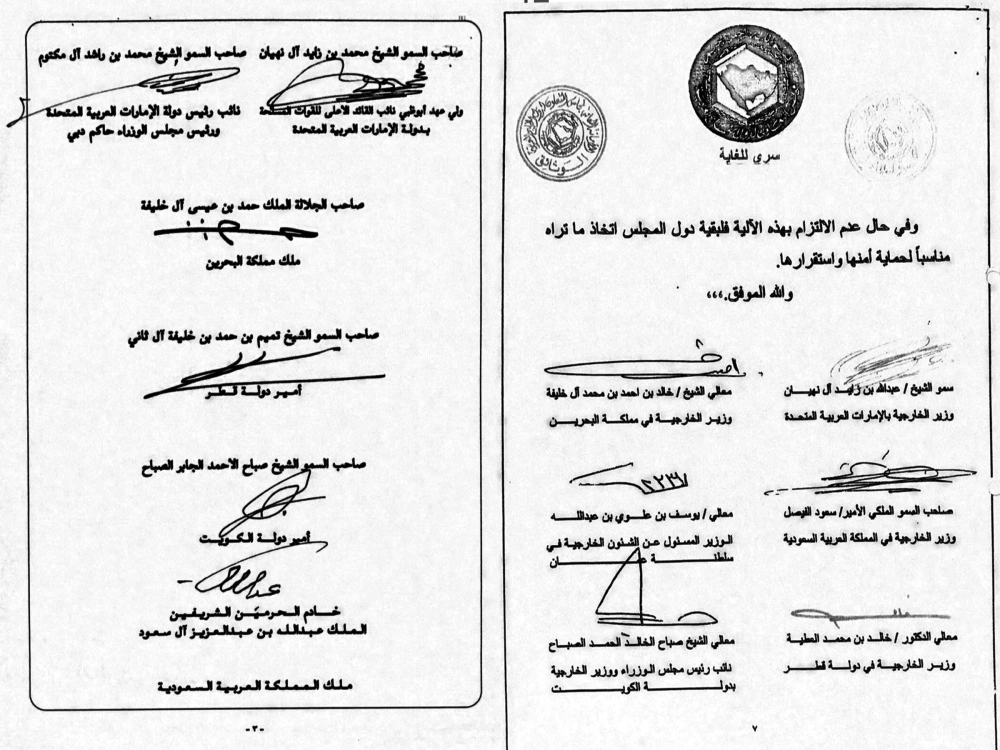 سري للغاية
الوثائق
وفي حال عدم الالتزام بهذه الآلية فلبقية دول المجلس اتخاذ ما تراه
مناسباً لحماية أمنها واستقرارها.
والله الموفق.،،،
سمو الشيخ / عبدالله بن زايد آل نهيان
وزير الخارجية بالإمارات العربية المتحدة
معالي الشيخ / خالد بن احمد بن محمد آل خليفة
وزير الخارجية في مملكة البحرين
صاحب السمو الملكي الأمير/ سعود الفيصل
وزير الخارجية في المملكة العربية السعودية
معالي / يوسف بن علوي بن عبدالله
الوزير المسئول عن الشئون الخارجية في
سلطنة عمان
معالي الدكتور / خالد بن محمد العطية
وزير الخارجية في دولة قطر
معالي الشيخ صباح الخالد الحمد الصباح
نائب رئيس مجلس الوزراء ووزير الخارجية
بدولة الكويت
٧
صاحب السمو الشيخ محمد بن زايد آل نهيان
ولي عهد أبوظبي نائب القائد الأعلى للقوات المسلحة
بدولة الإمارات العربية المتحدة
صاحب السمو الشيخ محمد بن راشد آل مكتوم
نائب رئيس دولة الإمارات العربية المتحدة
ورئيس مجلس الوزراء حاكم دبي
صاحب الجلالة الملك حمد بن عيسى آل خليفة
ملك مملكة البحرين
صاحب السمو الشيخ تميم بن حمد بن خليفة آل ثاني
أمير دولة قطر
صاحب السمو الشيخ صباح الأحمد الجابر الصباح
أمير دولة الكويت
خادم الحرمين الشريفين
الملك عبدالله بن عبدالعزيز آل سعود
ملك المملكة العربية السعودية
-٣-